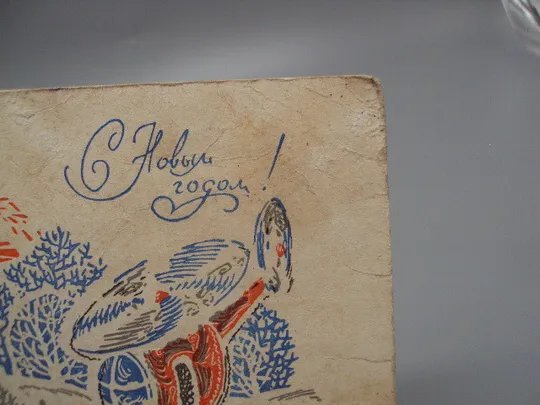 С Новым
годом!